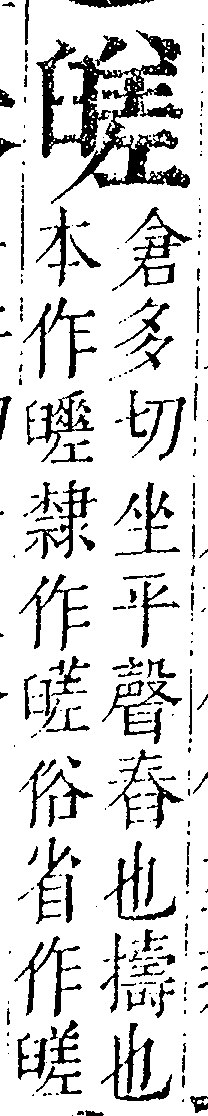 䑘
倉多切坐平聲舂也擣也
本作隸作俗省作䑘